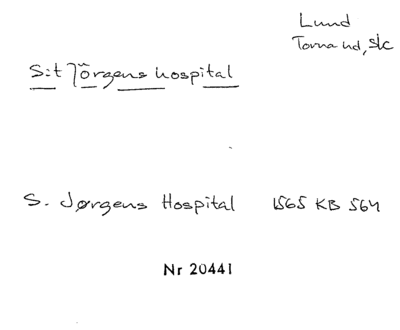 Lund
Torna hd, Sk
S:t Jörgens hospital
S. Jørgens Hospital 1565 KB 564
Nr 20441